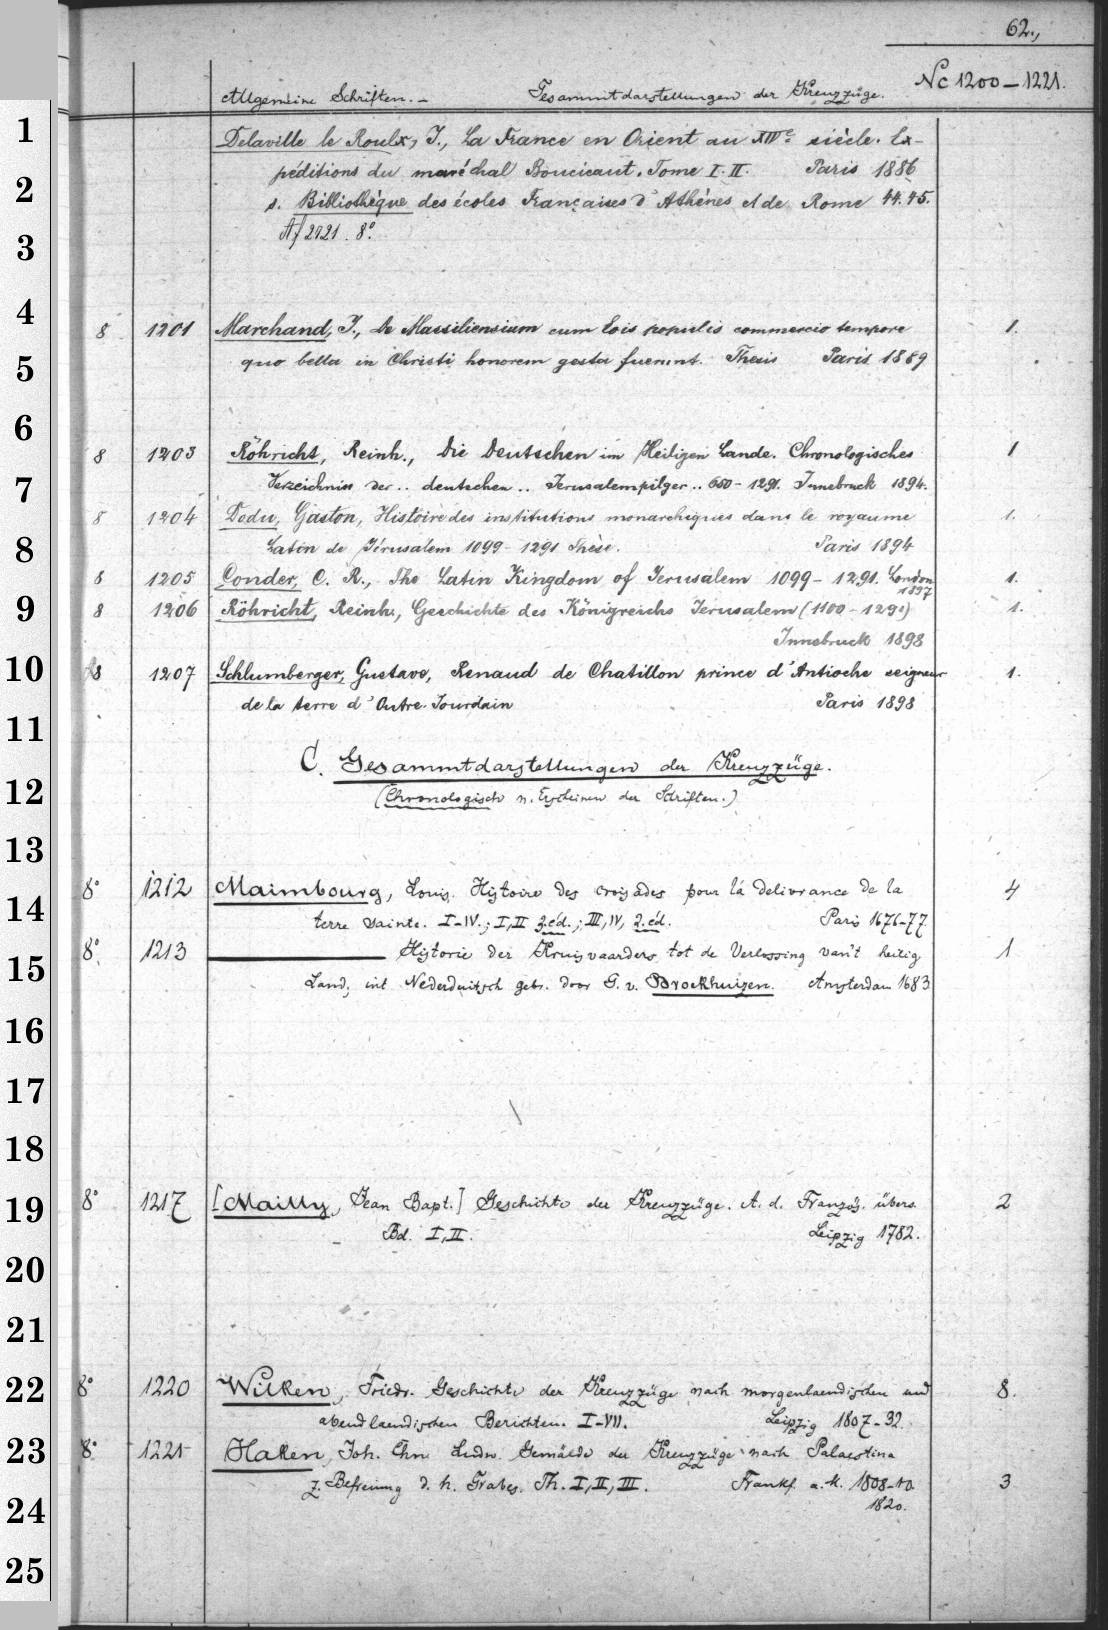 62.,
Allgemeine Schriften. – Gesammtdarstellungen der Kreuzzüge. Nc 1200–1221.
1
Delaville le Roulx, J., La France en Orient au XIVe siècle. Ex-
péditions du maréchal Boucicaut. Tome I. II. Paris 1886
2
s. Bibliothèque des écoles Françaises d'Athènes et de Rome 44. 45.
Af 2721. 8°.
3
4
8 1201 Marchand, J., De Massiliensium cum Eois populis commercio tempore 1.
5
quo bella in Christi honorem gesta fuerunt. Thesis Paris 1889
6
8 1203 Röhricht, Reinh., Die Deutschen im Heiligen Lande. Chronologisches 1
7
Verzeichniss der .. deutschen .. Jerusalempilger .. 650–1291. Innsbruck 1894.
8 1204 Dodu, Gaston, Histoire des institutions monarchiques dans le royaume 1.
8
Latin de Jérusalem 1099–1291 Thèse. Paris 1894
8 1205 Conder, C. R., The Latin Kingdom of Jerusalem 1099–1291. London 1.
1897
9
8 1206 Röhricht, Reinh., Geschichte des Königreichs Jerusalem (1100–1291) 1.
Innsbruck 1898
10
8 1207 Schlumberger, Gustave, Renaud de Chatillon prince d'Antioche seigneur 1.
de la terre d'Outre-Jourdain Paris 1898
11
C. Gesammtdarstellungen der Kreuzzüge.
12
(Chronologisch n. Erscheinen der Schriften.)
13
8° 1212 Maimbourg, Louis. Histoire des croisades pour la delivrance de la 4
14
terre sainte. I–IV.; I, II 3. éd.; III, IV, 2. éd. Paris 1676–77.
8° 1213 Historie der Kruisvaarders tot de Verlossing van't heilig 1
15
Land, int Nederduitsch gebr. door G. v. Broekhuizen. Amsterdam 1683
16
17
18
8° 1217 [Mailly, Jean Bapt.] Geschichte der Kreuzzüge. A. d. Französ. übers. 2
19
Bd. I, II. Leipzig 1782.
20
21
22
8° 1220 Wilken, Friedr. Geschichte der Kreuzzüge nach morgenlaendischen und 8.
abendlaendischen Berichten. I–VII. Leipzig 1807–32.
23
8° 1221 Haken, Joh. Chn Ludw. Gemälde der Kreuzzüge nach Palaestina
z. Befreiung d. h. Grabes. Th. I, II, III. Frankf. a. M. 1808–10. 3
24
1820.
25